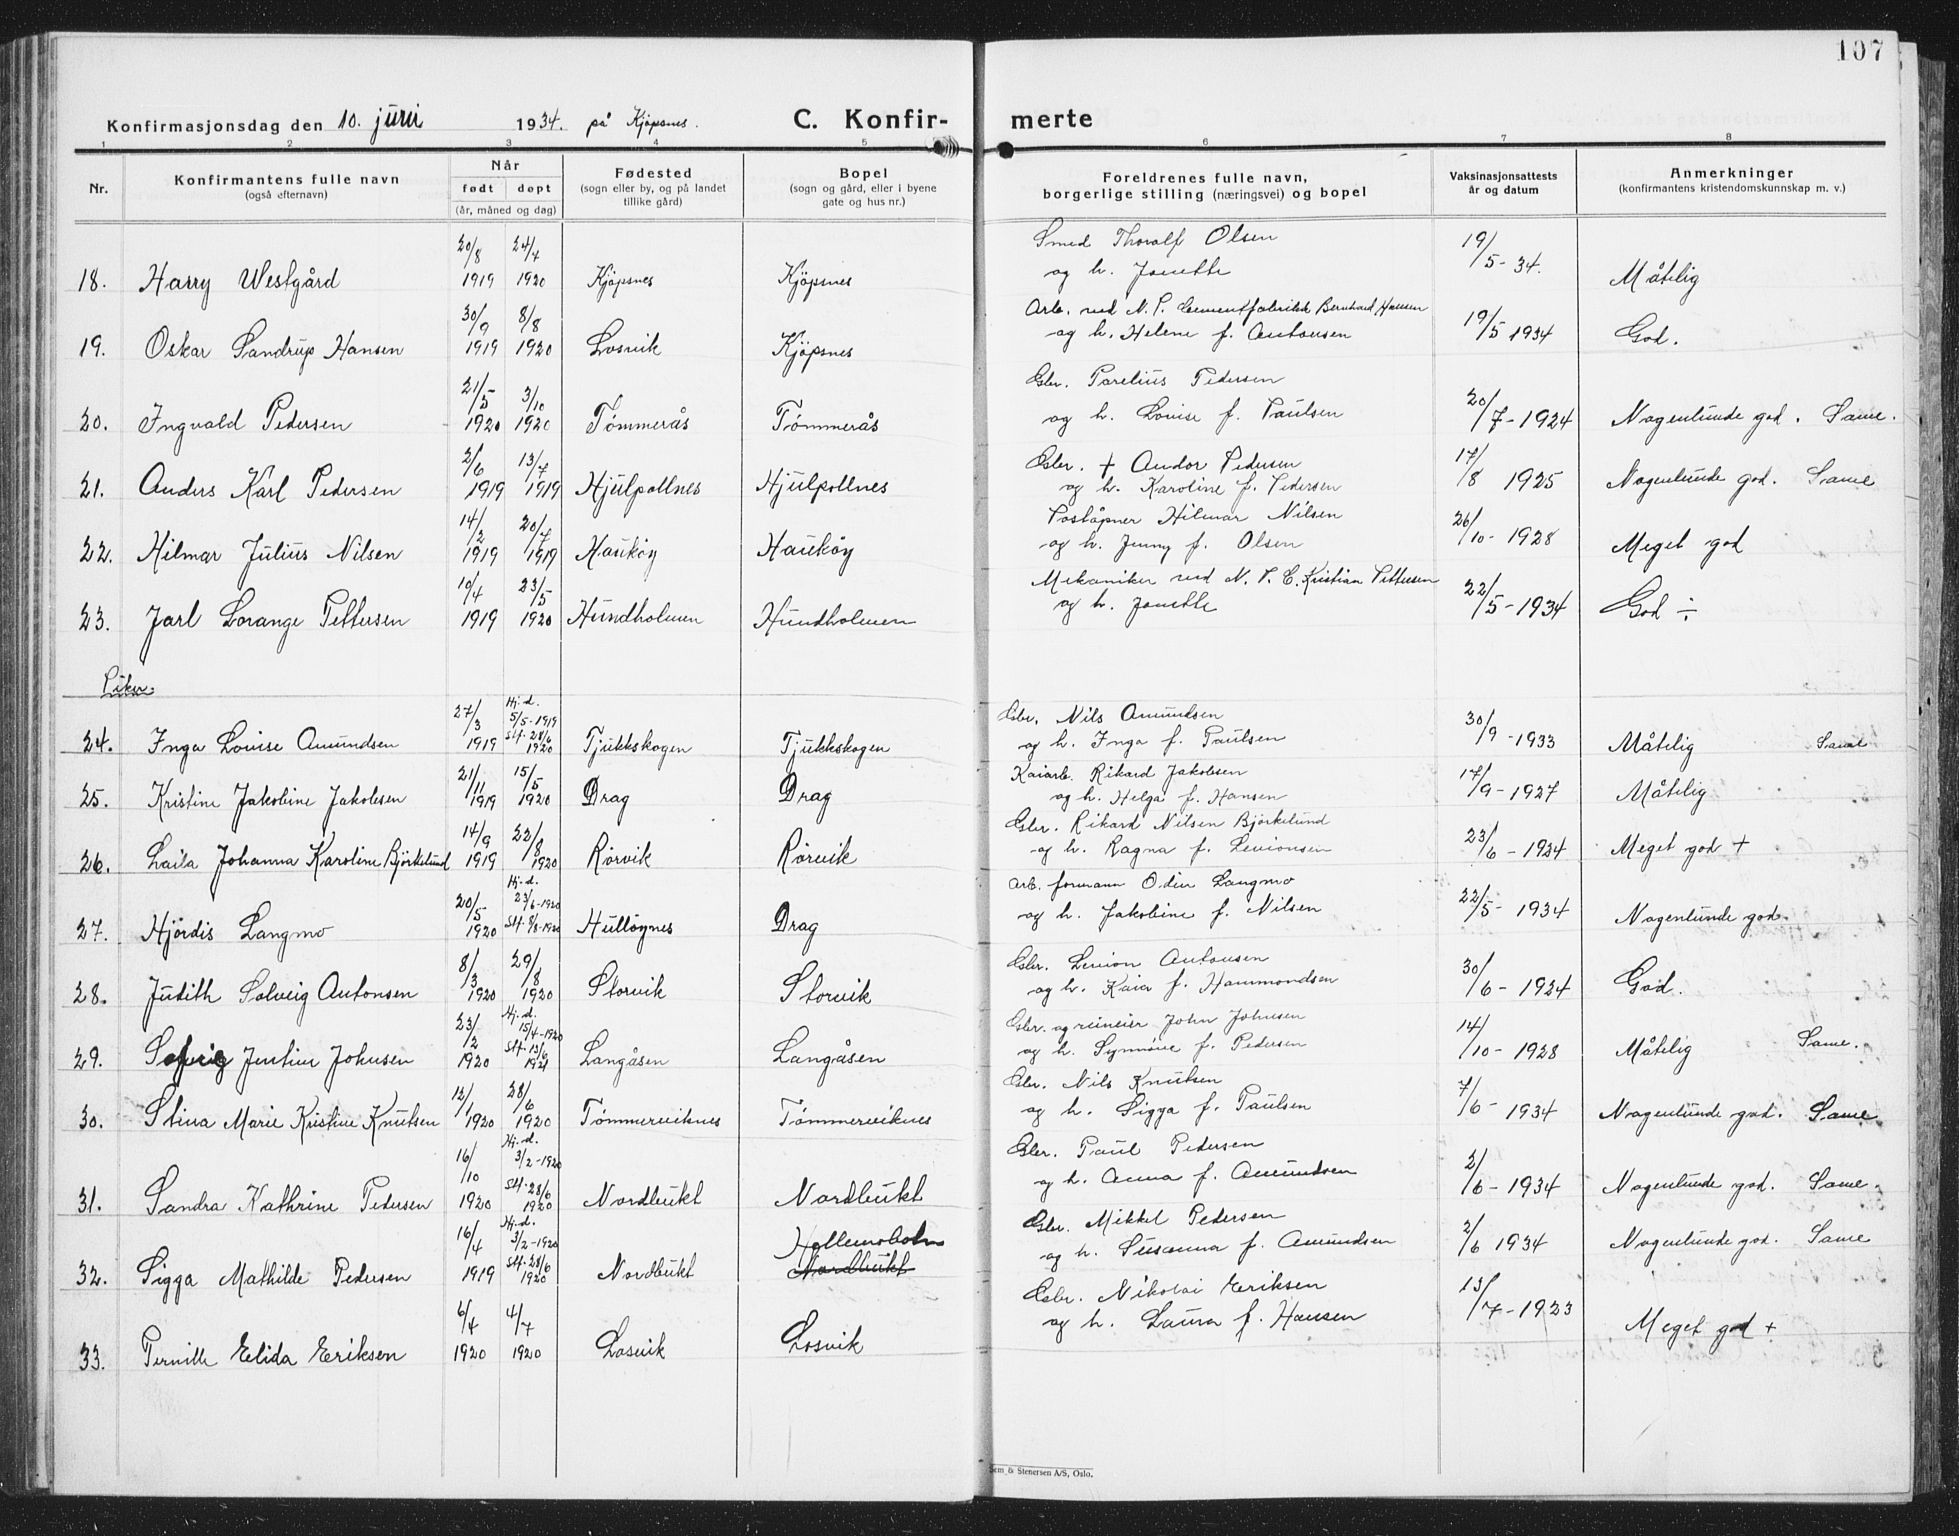 107
Konfirmasjonsdag den 10. juni 1934. på Kjøpsnes. C. Konfir- merte
1 2 3 4 5 6 7 8
Nr. Konfirmantens fulle navn (også efternavn) Når født døpt (år, måned og dag) Fødested (sogn eller by, og på landet tillike gård) Bopel (sogn og gård, eller i byene gate og hus nr.) Foreldrenes fulle navn, borgerlige stilling (næringsvei) og bopel Vaksinasjonsattests år og datum Anmerkninger (konfirmantens kristendomskunnskap m. v.)
18. Harry Westgård 20/8 1919 24/4 1920 Kjöpsnes Kjöpsnes Smed Thoralf Olsen og h. Jonette 19/5-34. Måtelig
19. Oskar Sandrup Hansen 30/9 1919 8/8 1920 Losvik Kjöpsnes Arb. ved N. P. Cementfabrikk Bernhard Hansen og h. Helene f. Antonsen 19/5 1934 God.
20. Ingvald Pedersen 21/5 1920 3/10 1920 Tømmerås Tømmerås Gbr. Parelius Pedersen og h. Louise f. Paulsen 20/7-1924 Nogenlunde god. Same.
21. Anders Karl Pedersen 2/6 1919 13/7 1919 Hjulpollnes Hjulpollnes Gbr. + Andor Pedersen og h. Karoline f. Pedersen 17/8 1925 Nogenlunde god. Same
22. Hilmar Julius Nilsen 14/2 1919 20/7 1919 Hauköy Hauköy Poståpner Hilmar Nilsen og h. Jenny f. Olsen 26/10-1928 Meget god
23. Jarl Lorange Pettersen 10/4 1919 23/5 1920 Hundholmen Hundholmen Mekaniker ved N. P. C. Kristian Pettersen og h. Jonette 22/5-1934 God ÷
Piker.
24. Inga Louise Amundsen 27/3 1919 Hj.d. 5/5-1919 Stf. 28/6 1920 Tjukkskogen Tjukkskogen Gbr. Nils Amundsen og h. Inga f. Paulsen 30/9-1933 Måtelig Same
25. Kristine Jakobine Jakobsen 21/11 1919 15/5 1920 Drag Drag Kaiarb. Rikard Jakobsen og h. Helga f. Hansen 17/9-1927 Måtelig
26. Laila Johanna Karoline Björkelund 14/9 1919 22/8 1920 Rørvik Rørvik Gbr. Rikard Nilsen Björkelund og h. Ragna f. Levionsen 23/6-1924 Meget god +
27. Hjördis Langmo 20/5 1920 Hj.d. 23/6-1920 Stf. 8/8-1920 Hulløynes Drag Arb. formann Odin Langmo og h. Jakobine f. Nilsen 22/5-1934 Nogenlunde god.
28. Judith Solveig Antonsen 8/3 1920 29/8 1920 Storvik Storvik Gbr. Levion Antonsen og h. Kaia f. Hammondsen 30/6-1924 God.
29. Jentine Johnsen 23/2 1920 Hj.d. 15/4-1920 Stf. 13/6 1921 Langåsen Langåsen Gbr. og reineier John Johnsen og h. Synnöve f. Pedersen 14/10-1928 Måtelig Same.
30. Stina Marie Kristine Knutsen 12/1 1920 28/6 1920 Tømmerviknes Tømmerviknes Gbr. Nils Knutsen og h. Sigga f. Paulsen 7/6-1934 Nogenlunde god. Same
31. Sandra Kathrine Pedersen 16/10 1920 Hj.d. 3/2-1920 Stf. 28/6 1920 Nordbukt Nordbukt Gbr. Paul Pedersen og h. Anna f. Amundsen 2/6-1934 Nogenlunde god. Same.
32. Sigga Mathilde Pedersen 16/4 1919 Hj.d. 3/2-1920 Stf. 28/6 1920 Nordbukt Hellemobotn Nordbukt Gbr. Mikkel Pedersen og h. Susanna f. Amundsen 2/6 1934 Nogenlunde god. Same
33. Pernille Elida Eriksen 6/4 1920 4/7 1920 Losvik Losvik Gbr. Nikolai Eriksen og h. Laura f. Hansen 13/7-1923 Meget god +
Sem & Stenersen A/S, Oslo.